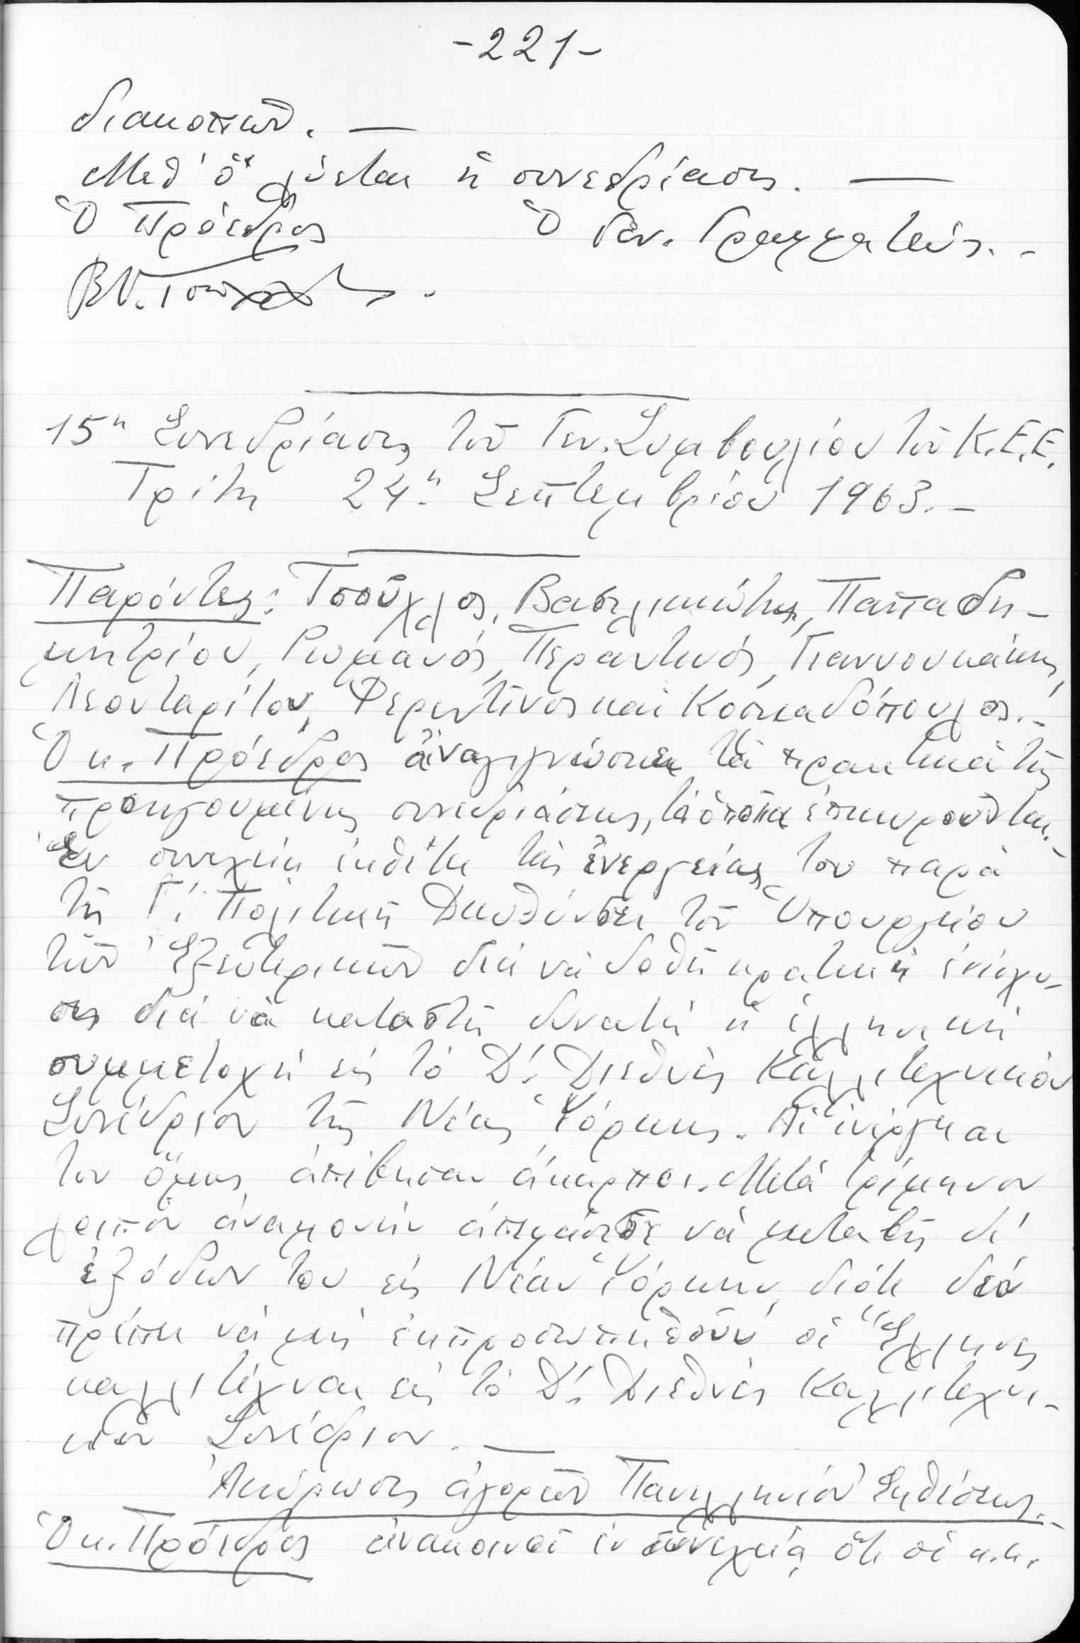 -221-
διακοπῶν. —
Μεθ' ὃ λύεται ἡ συνεδρίασις. —
Ὁ Πρόεδρος Ὁ Γεν. Γραμματεύς. -
15η Συνεδρίασις τοῦ Γεν. Συμβουλίου τοῦ Κ.Ε.Ε.
Τρίτη 24η Σεπτεμβρίου 1963. -
Παρόντες: Τσοῦχλος, Βασιλικιώτης, Παπαδη-
μητρίου, Ρωμανός, Περαντινός, Γιαννουκάκης,
Λεονταρίτου, Φερεντῖνος καὶ Κοσκαδόπουλος. -
Ὁ κ. Πρόεδρος ἀναγιγνώσκει τὰ πρακτικὰ τῆς
προηγουμένης συνεδριάσεως, τὰ ὁποῖα ἐπικυροῦνται. -
Ἐν συνεχείᾳ ἐκθέτει τὰς ἐνεργείας του παρὰ
τῇ Γ' Πολιτικῇ Διευθύνσει τοῦ Ὑπουργείου
τῶν Ἐξωτερικῶν διὰ νὰ δοθῇ κρατικὴ ἐνίσχυ-
σις διὰ νὰ καταστῇ δυνατὴ ἡ ἑλληνικὴ
συμμετοχὴ εἰς τὸ Δ'. Διεθνὲς Καλλιτεχνικὸν
Συνέδριον τῆς Νέας Ὑόρκης. Αἱ ἐνέργειαι
του ὅμως ἀπέβησαν ἄκαρποι. Μετὰ τρίμηνον
λοιπὸν ἀναμονὴν ἀπεφάσισε νὰ μεταβῇ δι'
ἐξόδων του εἰς Νέαν Ὑόρκην, διότι δὲν
πρέπει νὰ μὴ ἐκπροσωπηθοῦν οἱ Ἕλληνες
καλλιτέχναι εἰς τὸ Δ'. Διεθνὲς Καλλιτεχνι-
κὸν Συνέδριον. —
Ἀκύρωσις ἀγορῶν Πανελληνίου Ἐκθέσεως. -
Ὁ κ. Πρόεδρος ἀνακοινοῖ ἐν συνεχείᾳ ὅτι οἱ κ.κ.